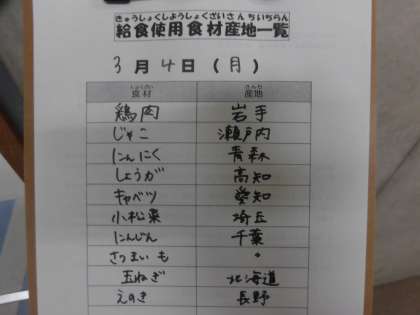 きゅうしょくしようしょくざいさんちいちらん
給食使用食材産地一覧
3月4日(月)
しょくざい さんち
食材 産地
鶏肉 岩手
じゃこ 瀬戸内
にんにく 青森
しょうが 高知
キャベツ 愛知
小松菜 埼玉
にんじん 千葉
さつまいも 〃
玉ねぎ 北海道
えのき 長野